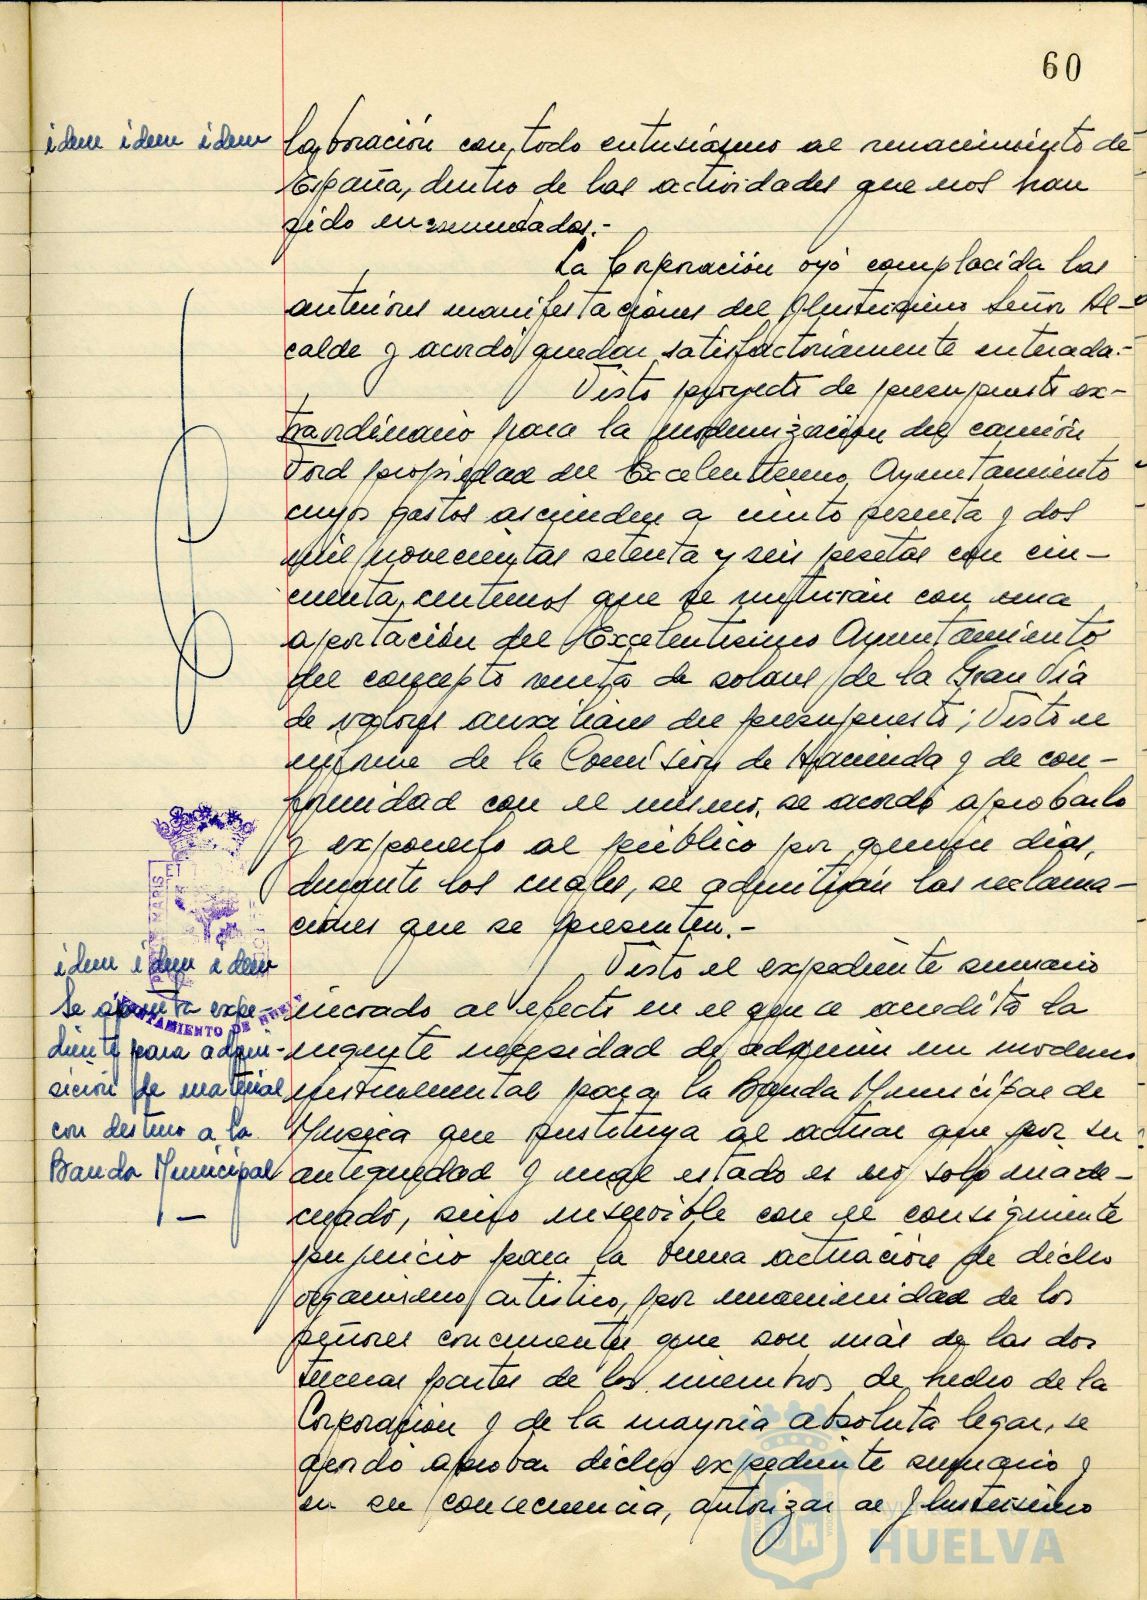 60
idem idem idem
laboración con todo entusiasmo al renacimiento de
España, dentro de las actividades que nos han
sido encomendadas.-
La Corporación oyó complacida las
anteriores manifestaciones del Ilustrisimo Señor Al-
calde y acordó quedar satisfactoriamente enterada.-
Visto proyecto de presupuesto ex-
traordinario para la modernización del camión
Ford propiedad del Excelentisimo Ayuntamiento
cuyos gastos ascienden a ciento sesenta y dos
mil novecientas setenta y seis pesetas con cin-
cuenta centimos que se nutrirán con una
aportación del Excelentisimo Ayuntamiento
del concepto venta de solares de la Gran Via
de valores auxiliares del presupuesto; Visto el
informe de la Comisión de Hacienda y de con-
formidad con el mismo, se acordó aprobarlo
y exponerlo al público por quince dias,
durante los cuales, se admitirán las reclama-
ciones que se presenten.-
idem idem idem
Se aprueba expe-
diente para adqui-
sición de material
con destino a la
Banda Municipal
Visto el expediente sumario
incoado al efecto en el que se acredita la
urgente necesidad de adquirir un moderno
instrumental para la Banda Municipal de
Musica que sustituya al actual que por su
antiguedad y mal estado es no solo inade-
cuado, sino inservible con el consiguiente
perjuicio para la buena actuación de dicho
organismo artistico, por unanimidad de los
señores concurrentes que son más de las dos
terceras partes de los miembros de hecho de la
Corporación y de la mayoria absoluta legal, se
acordó aprobar dicho expediente sumario y
en su consecuencia, autorizar al Ilustrisimo
AYUNTAMIENTO DE HUELVA
HUELVA